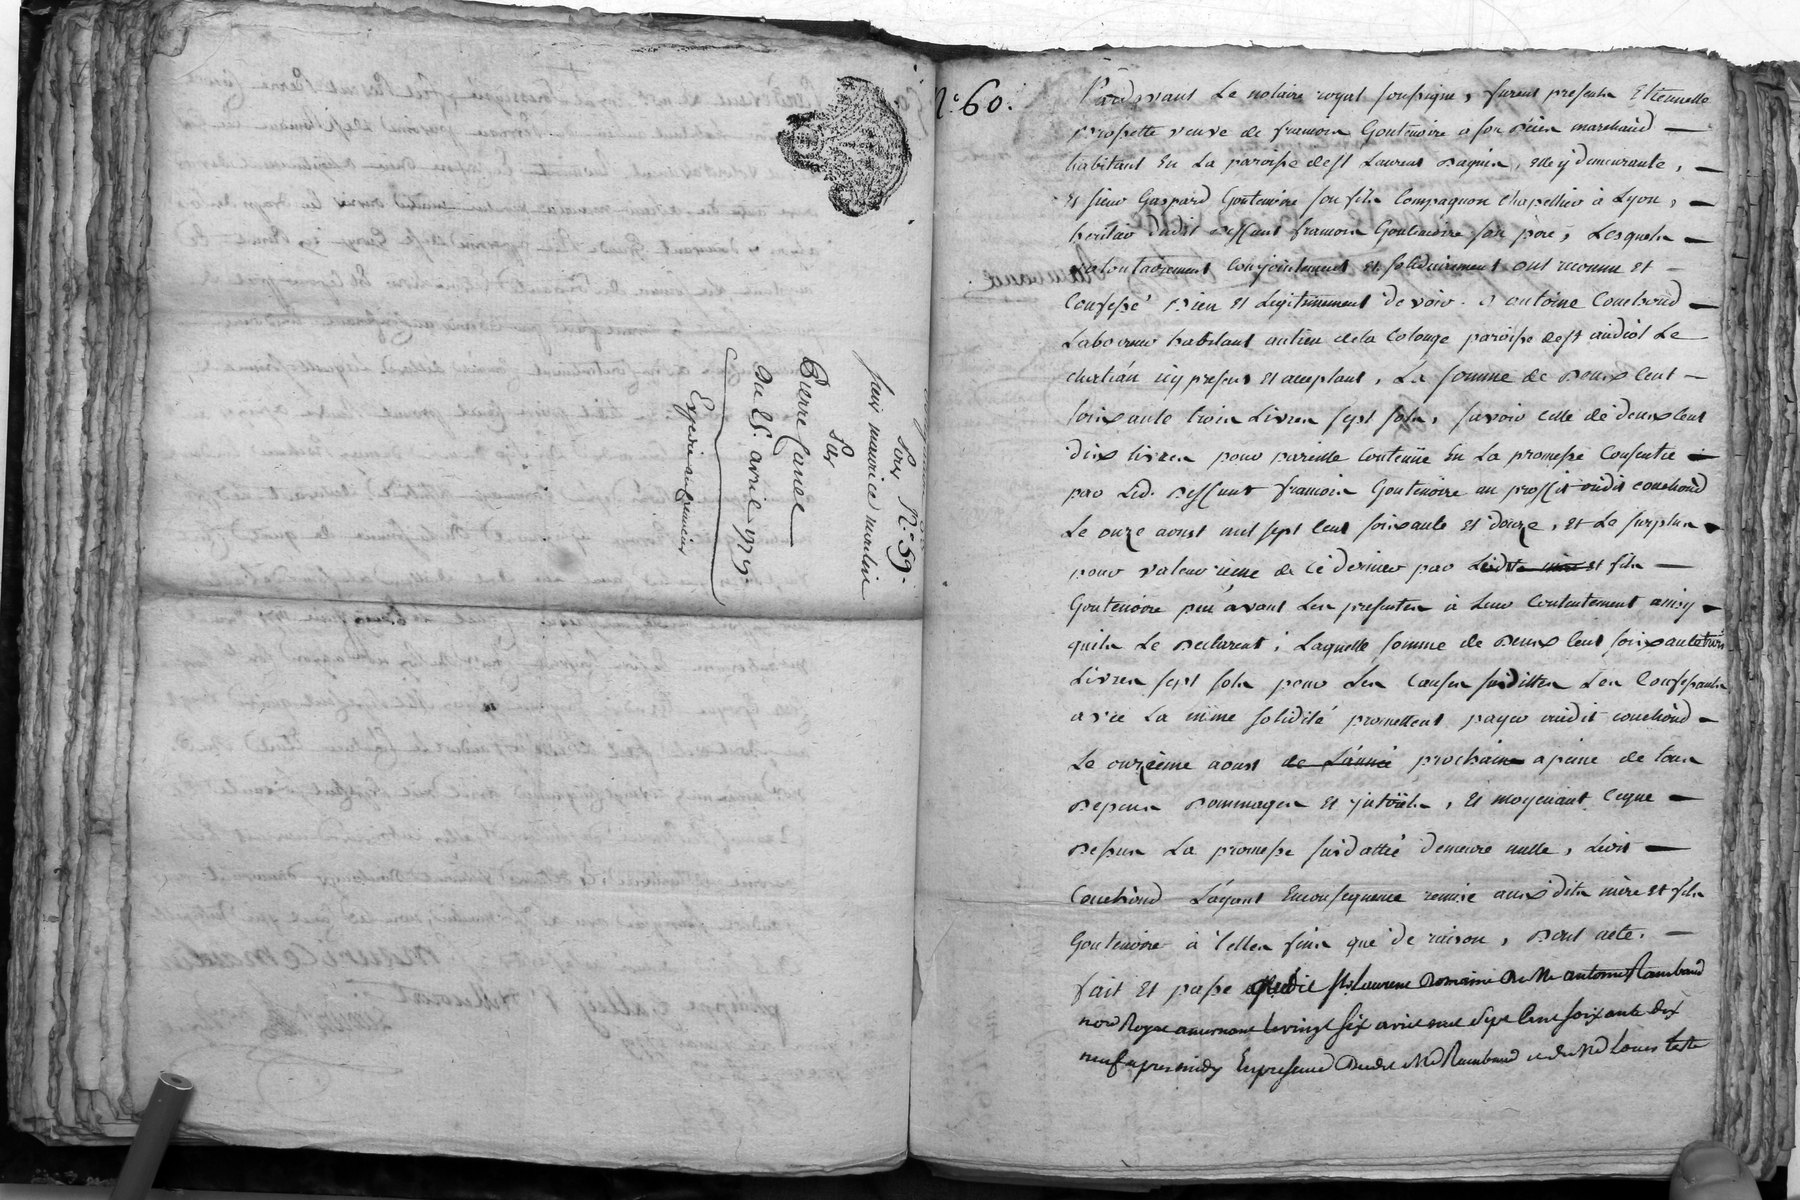 Sous N.° 59.
sieur maurice maulin
Par
Pierre Carret
Du 25. avril 1779.
Expedié au premier
N.° 60.
Pardevant Le notaire royal soussigné, furent presents Etiennette
veuve de francois Goutenoire a son vivant marchand
habitant En La paroisse de St Laurent Dagnin, elle y demeurante,
et sieur Gaspard Goutenoire son fils Compagnon Chapellier à Lyon,
heritier dudit Deffunt francois Goutenoire son père, Lesquels
volontairement Conjointement et solidairement ont reconnu et
Confessé Bien et Legitimement devoir a antoine Couchoud
Laboureur habitant au lieu de la Colonge paroisse de St andéol Le
chatéau icy present et acceptant, La somme de Deux Cent
soixante trois Livres sept sols, savoir celle de deux Cent
dix livres pour pareille Contenüe En La promesse Consentie
par Led. Deffunt francois Goutenoire au proffit dudit couchoud
Le onze aoust mil sept Cent soixante et douze, et Le surplus
pour valeur reçue de ce dernier par Lesdits mère et fils
Goutenoire peu avant Les presentes à Leur Contentement ainsy
quils Le Declarent; Laquelle somme de Deux Cent soixante trois
Livres sept sols pour Les Causes susdittes Les Confessants
avec La même solidité promettent payer audit couchoud
Le onzieme aoust de L'année prochaine a peine de tous
Depens Dommages et interêts, et moyenant ceque
Dessus La promesse susdattée demeure nulle, Ledit
Couchoud L'ayant En consequence remise auxdits mère et fils
Goutenoire à telles fins que de raison, Dont acte.
fait et passé audit St Laurent Domaine de Me antoine Rambaud
nore Royal a mornant Le vingt six avril mil sept Cent soixante dix
neuf apres midy En presence Dudit Me Rambaud et de Me Louis teste